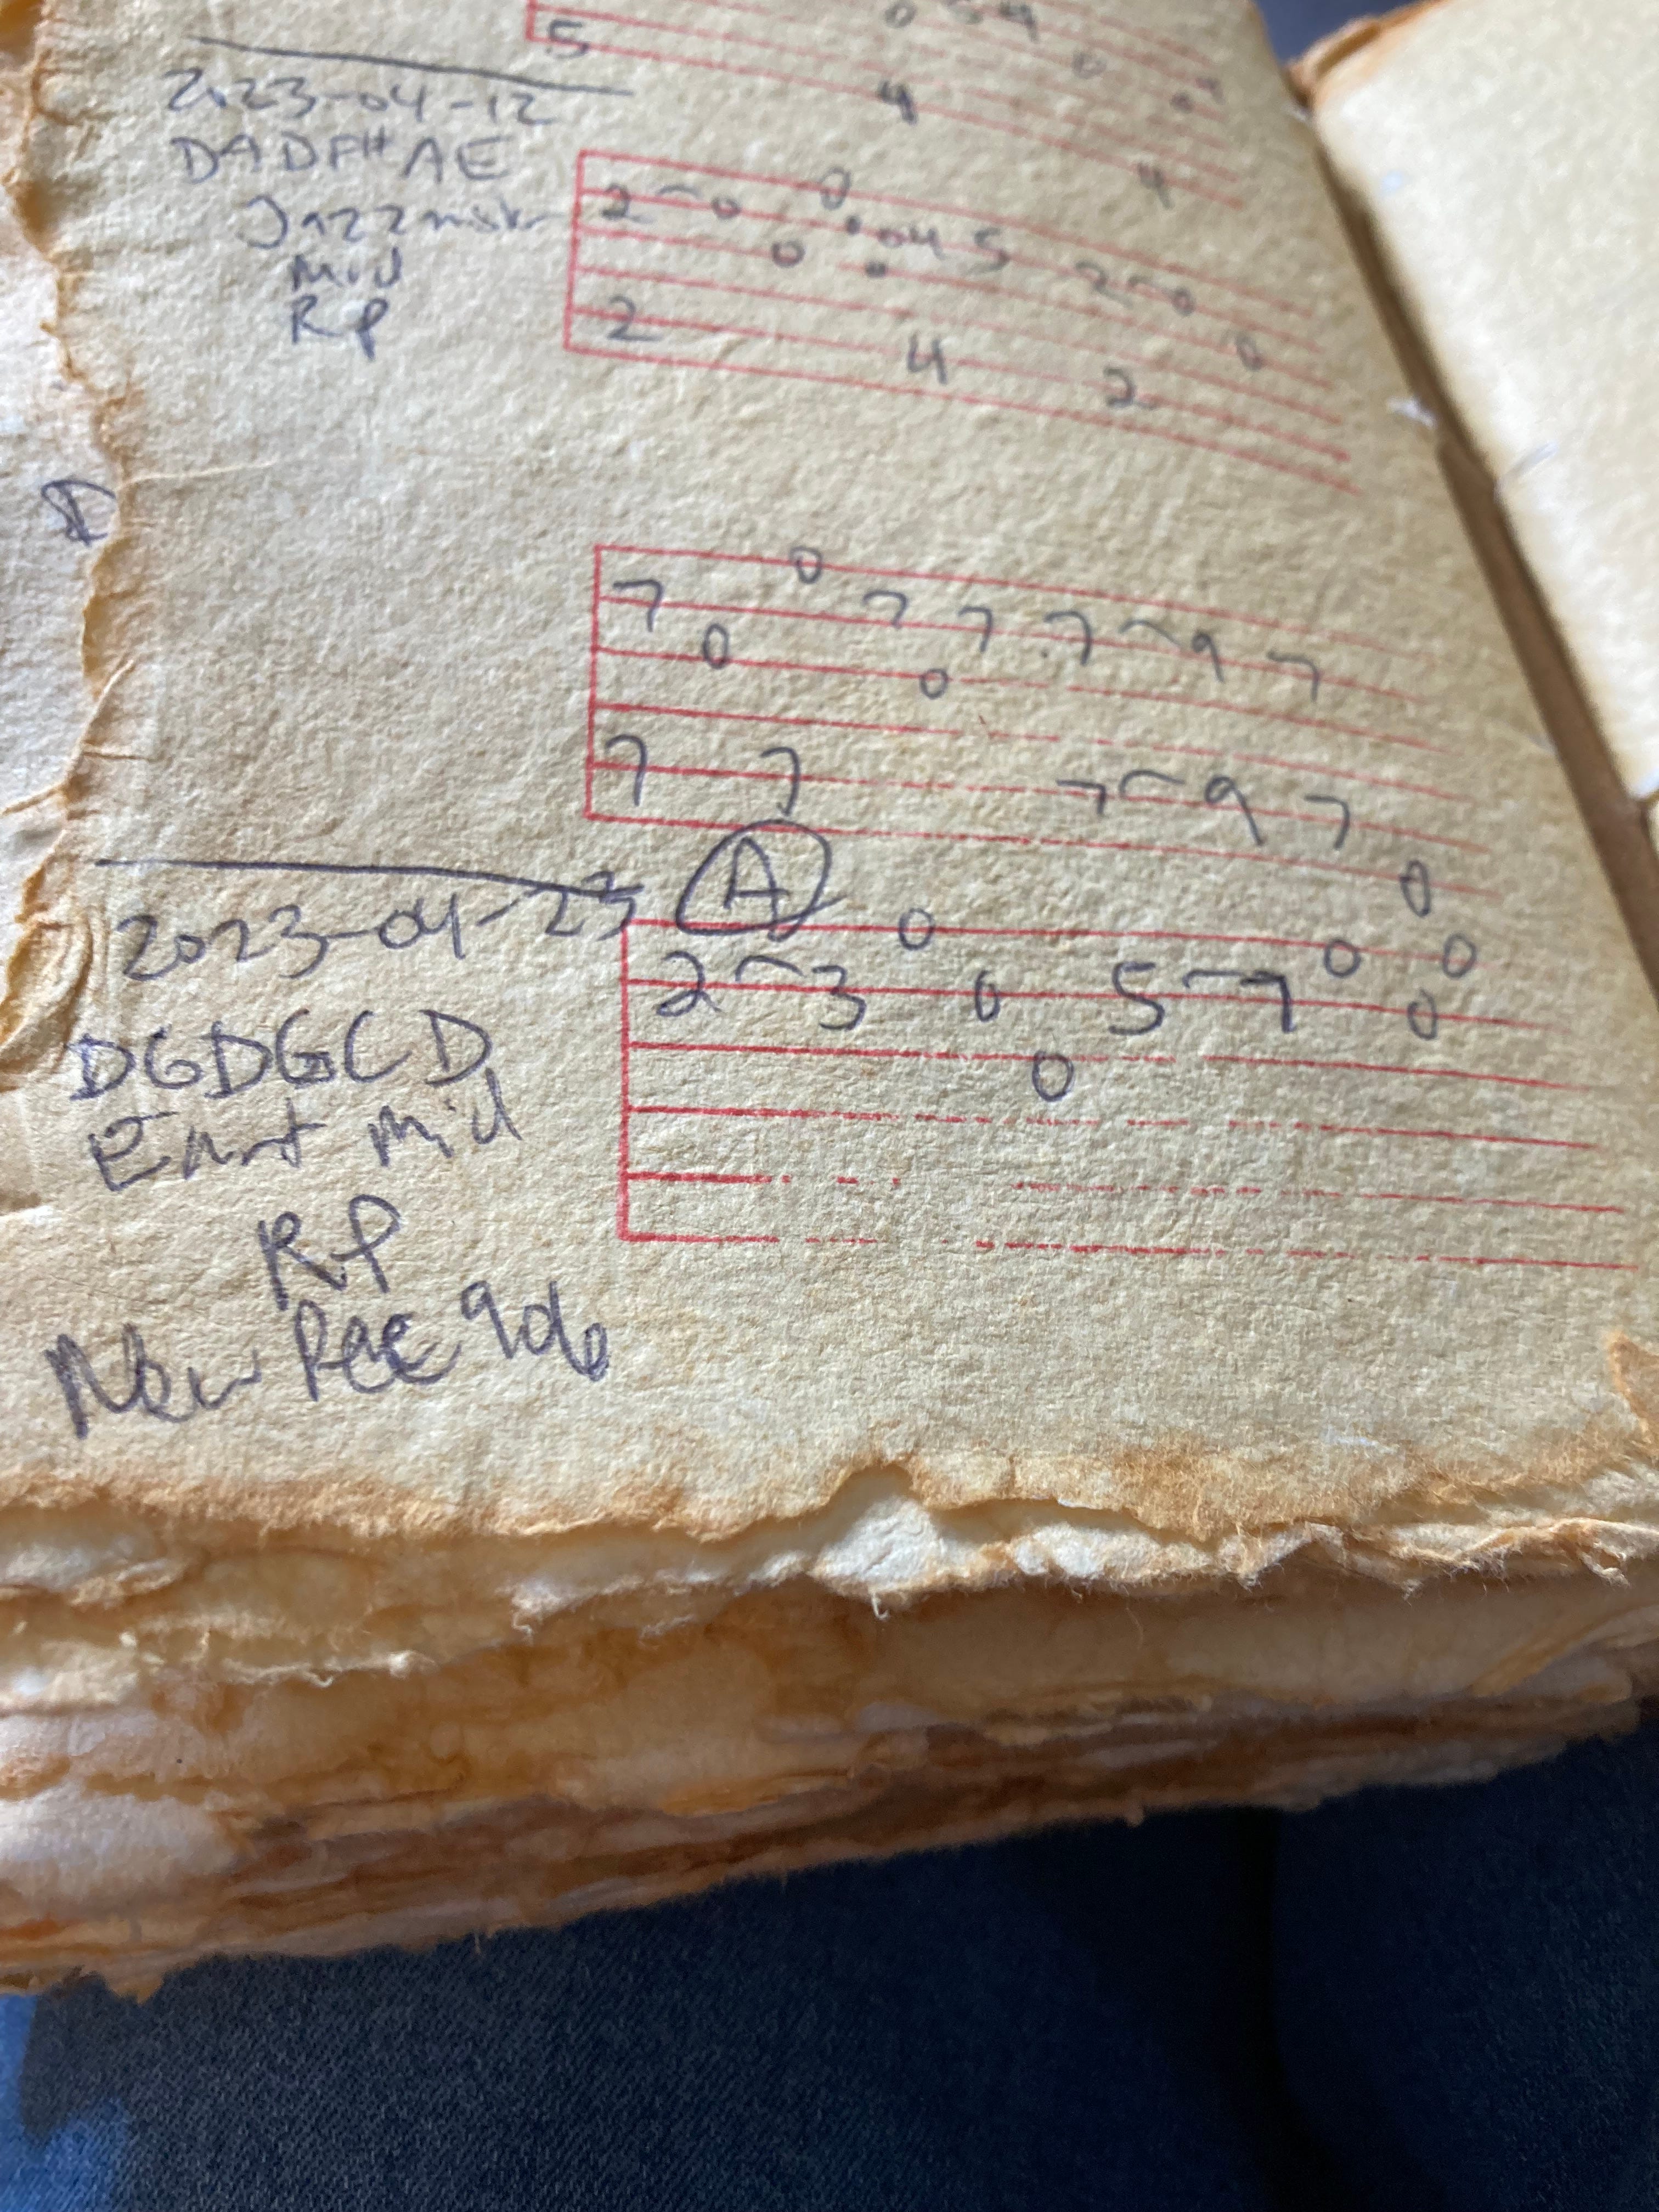 0 5 4
5 0 0 4
4 4
2023-04-12
DADF# AE
Jazzmstr
Mid
RP
0
2⁀0 0 4 5 2⁀0
0 0
2 4 2
D
0
7 7 7 7⁀9 7
0 0
7 7 7⁀9 7
0
2023-04-23
A
DGDGCD
Mid
RP
New Rec 906
0 0 0
2⁀3 0 5⁀7 0
0